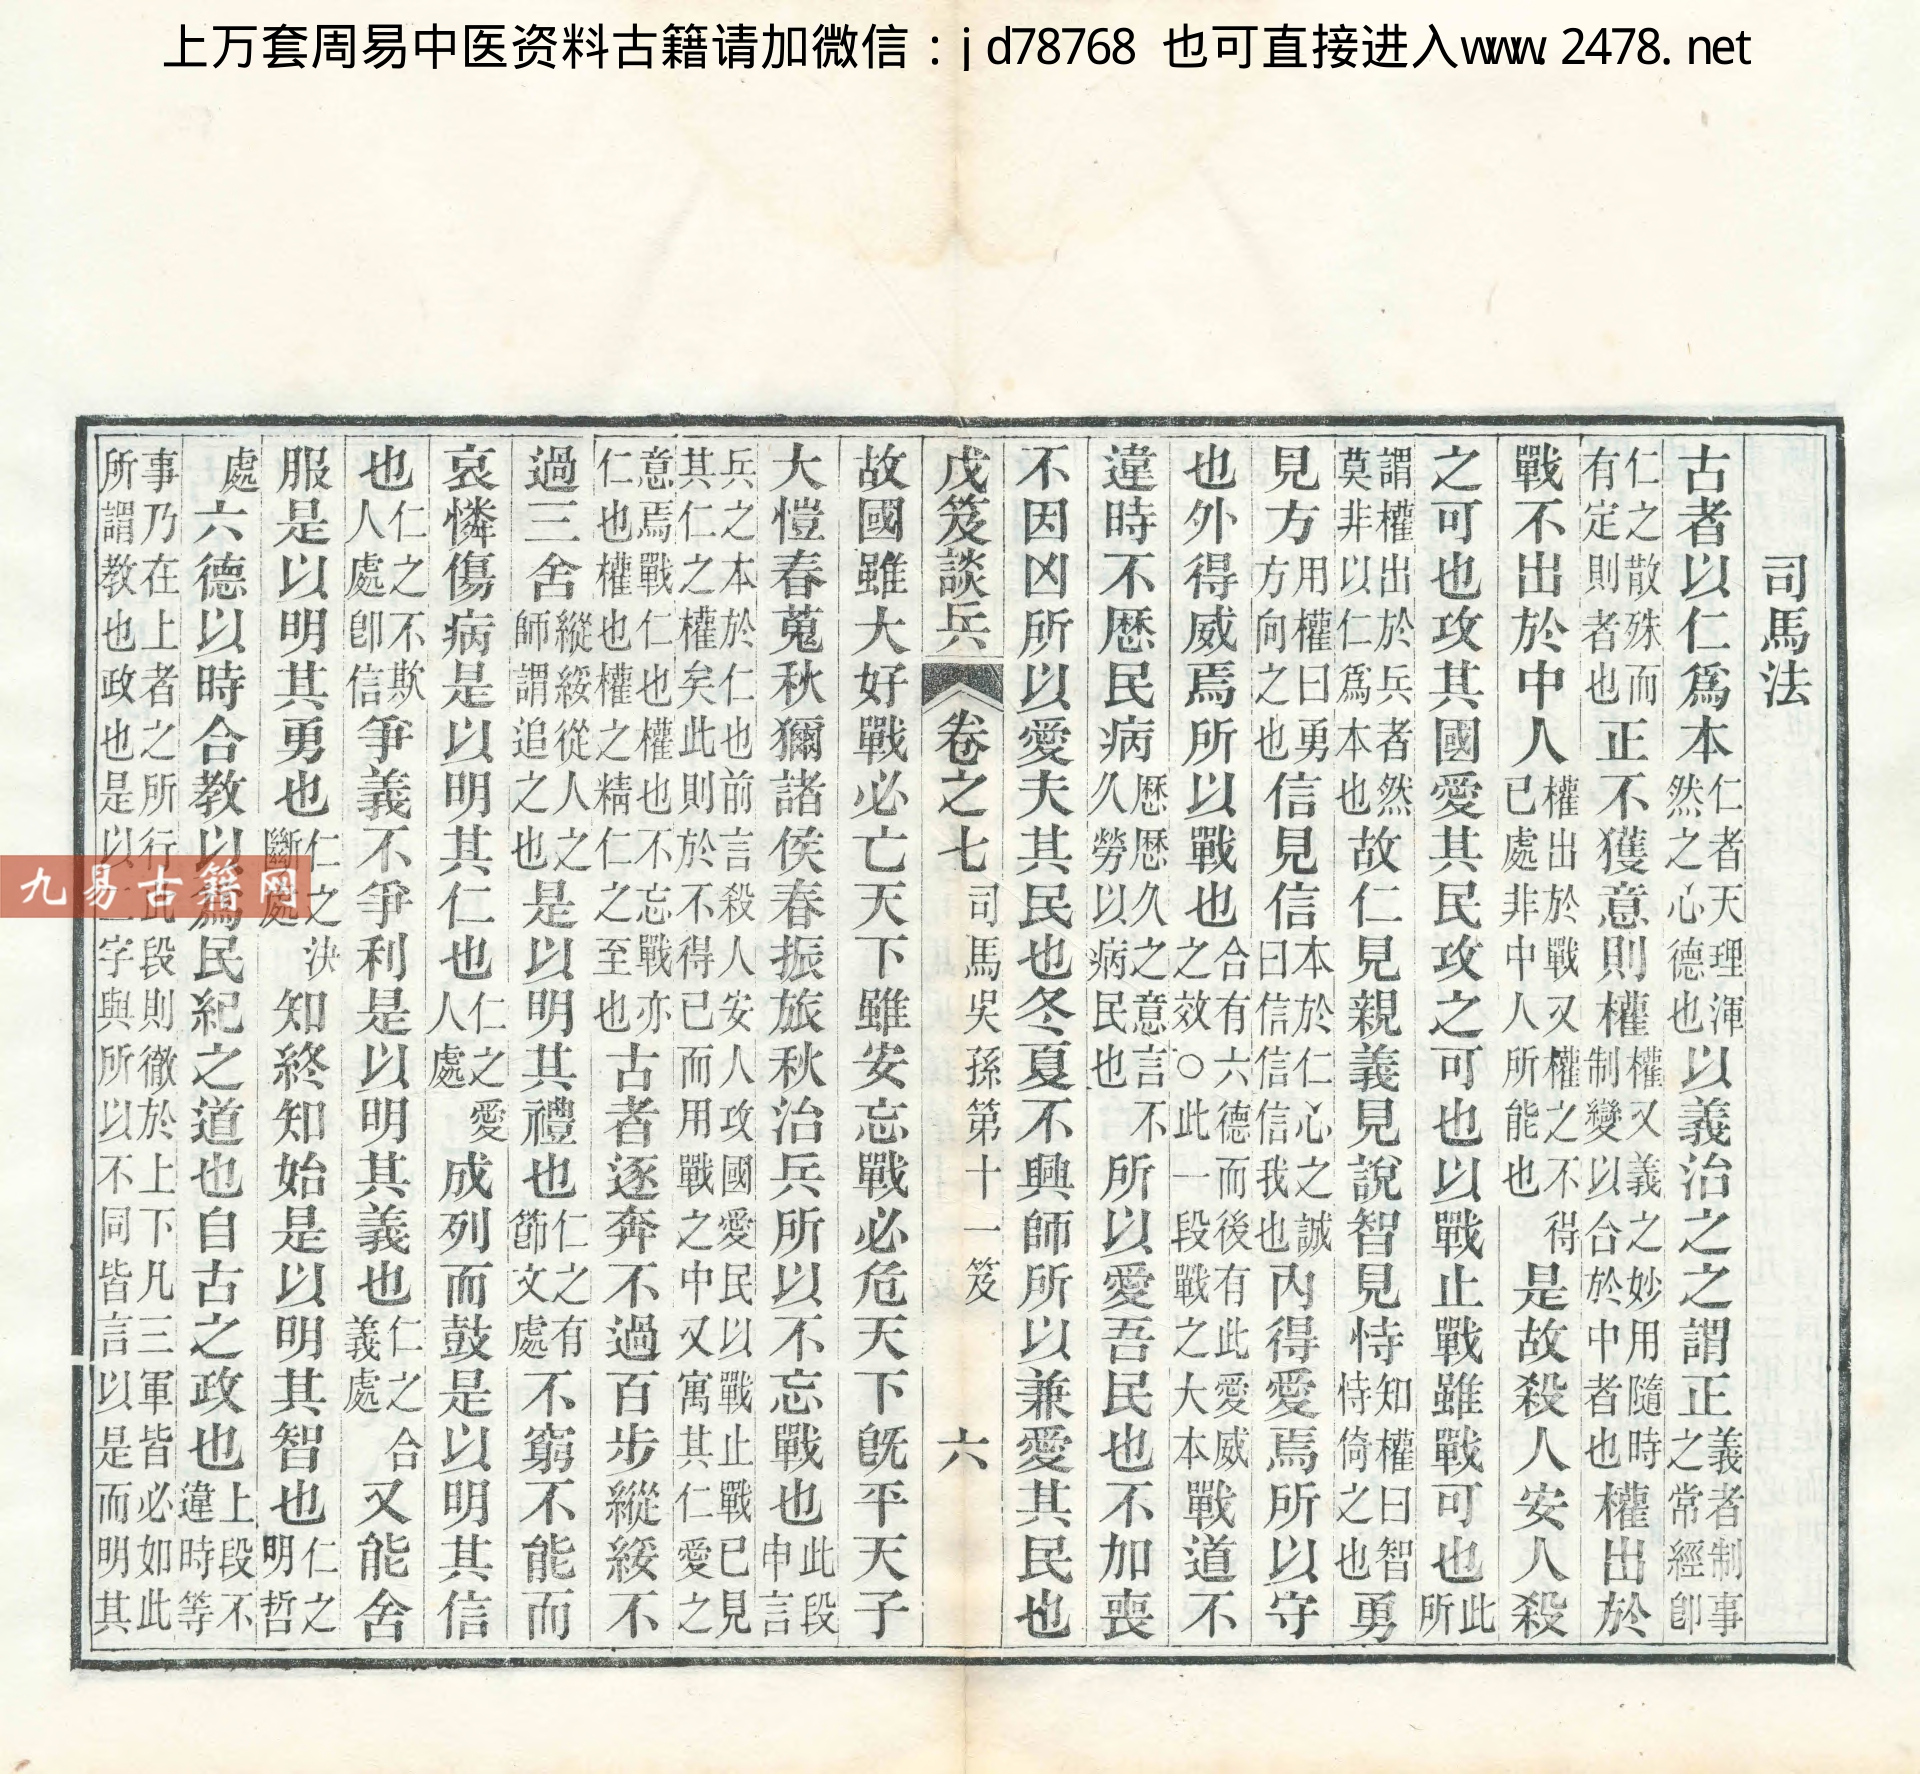 上万套周易中医资料古籍请加微信：jd78768 也可直接进入www.2478.net
司馬法
古者以仁爲本仁者天理渾然之心德也以義治之之謂正義者制事之常經卽
仁之散殊而有定則者也正不獲意則權權又義之妙用隨時制變以合於中者也權出於
戰不出於中人權出於戰又權之不得已處非中人所能也是故殺人安人殺
之可也攻其國愛其民攻之可也以戰止戰雖戰可也此所
謂權出於兵者然莫非以仁爲本也故仁見親義見說智見恃知權曰智恃倚之也勇
見方用權曰勇方向之也信見信本於仁心之誠曰信信信我也內得愛焉所以守
也外得威焉所以戰也合有六德而後有此愛威之效○此一段戰之大本戰道不
違時不歷民病歷歷久之意言不久勞以病民也所以愛吾民也不加喪
不因凶所以愛夫其民也冬夏不興師所以兼愛其民也
戊笈談兵 卷之七 司馬吳孫第十一笈 六
故國雖大好戰必亡天下雖安忘戰必危天下旣平天子
大愷春蒐秋獮諸侯春振旅秋治兵所以不忘戰也此段申言
兵之本於仁也前言殺人安人攻國愛民以戰止戰已見其仁之權矣此則於不得已而用戰之中又寓其仁愛之
意焉戰仁也權也不忘戰亦仁也權也權之精仁之至也古者逐奔不過百步縱綏不
過三舍縱綏從人之師謂追之也是以明其禮也仁之有節文處不窮不能而
哀憐傷病是以明其仁也仁之愛人處成列而鼓是以明其信
也仁之不欺人處卽信爭義不爭利是以明其義也仁之合義處又能舍
服是以明其勇也仁之決斷處知終知始是以明其智也仁之明哲
處六德以時合教以爲民紀之道也自古之政也上段不違時等
事乃在上者之所行此段則徹於上下凡三軍皆必如此所謂教也政也是以二字與所以不同皆言以是而明其
九易古籍网